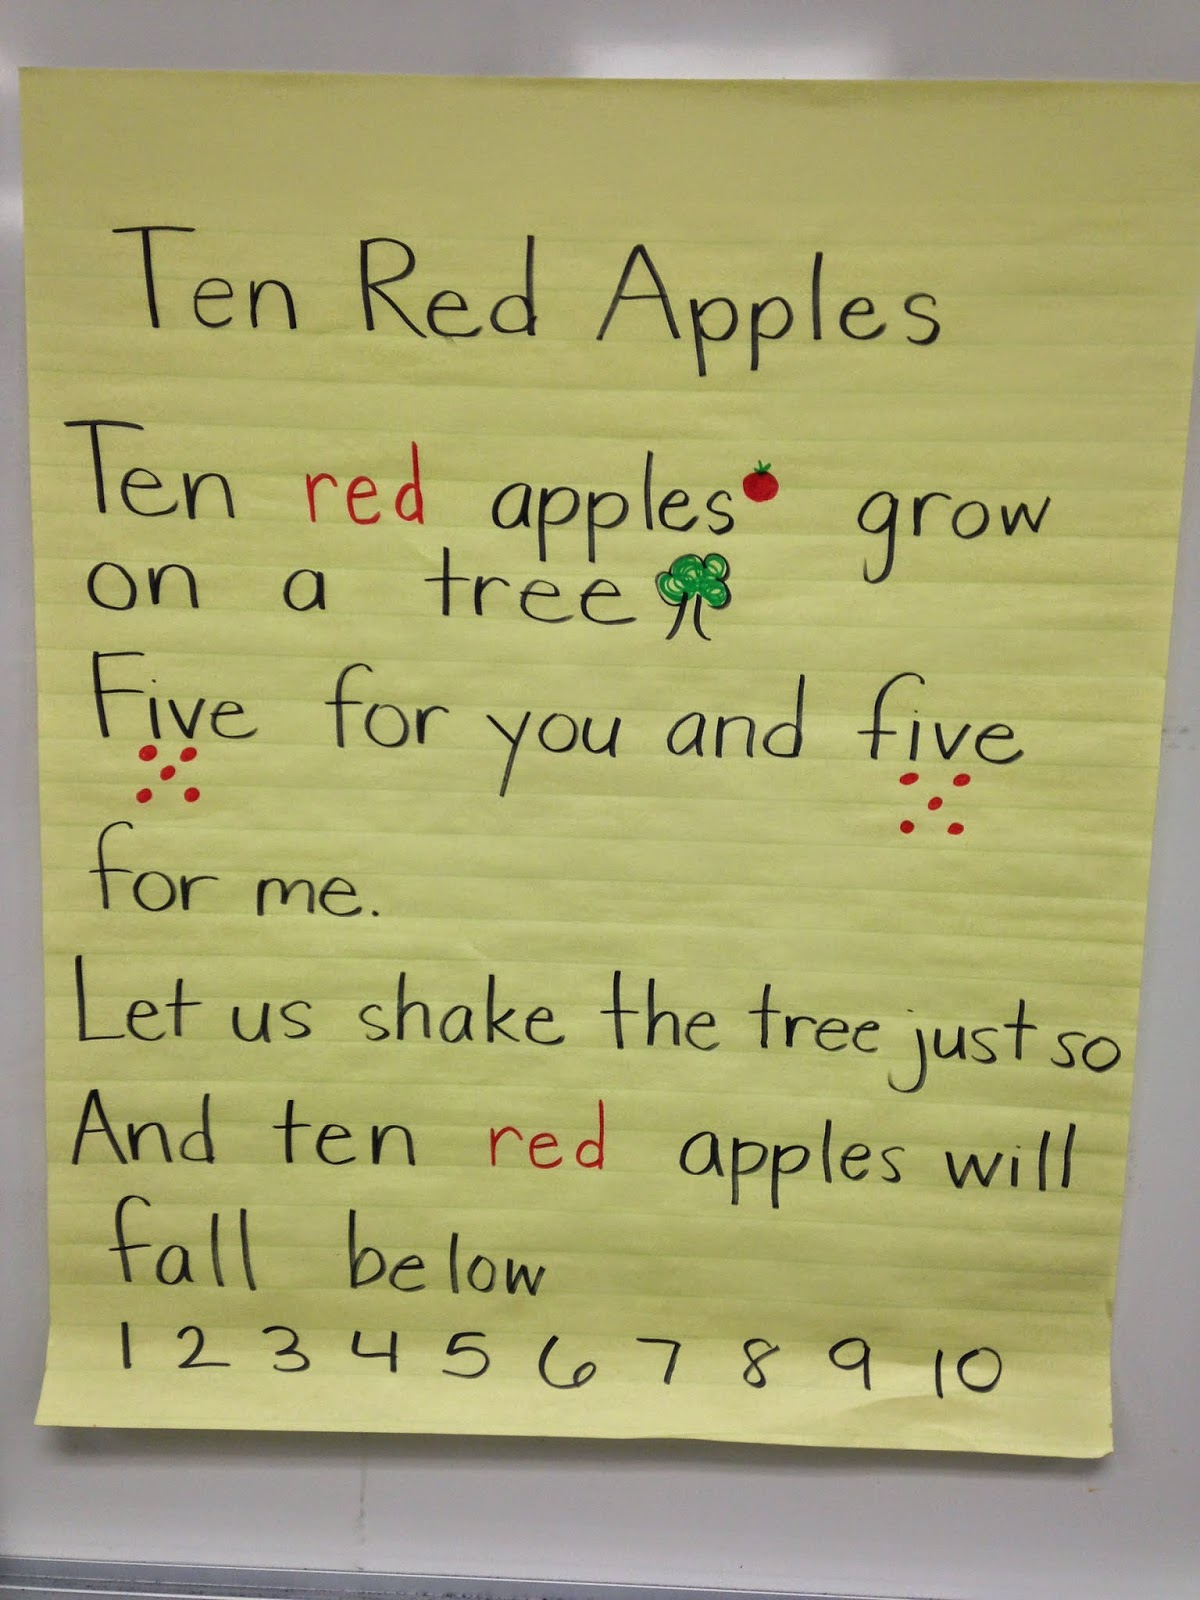 Ten Red Apples
Ten red apples grow
on a tree
Five for you and five
for me.
Let us shake the tree just so
And ten red apples will
fall below
1 2 3 4 5 6 7 8 9 10